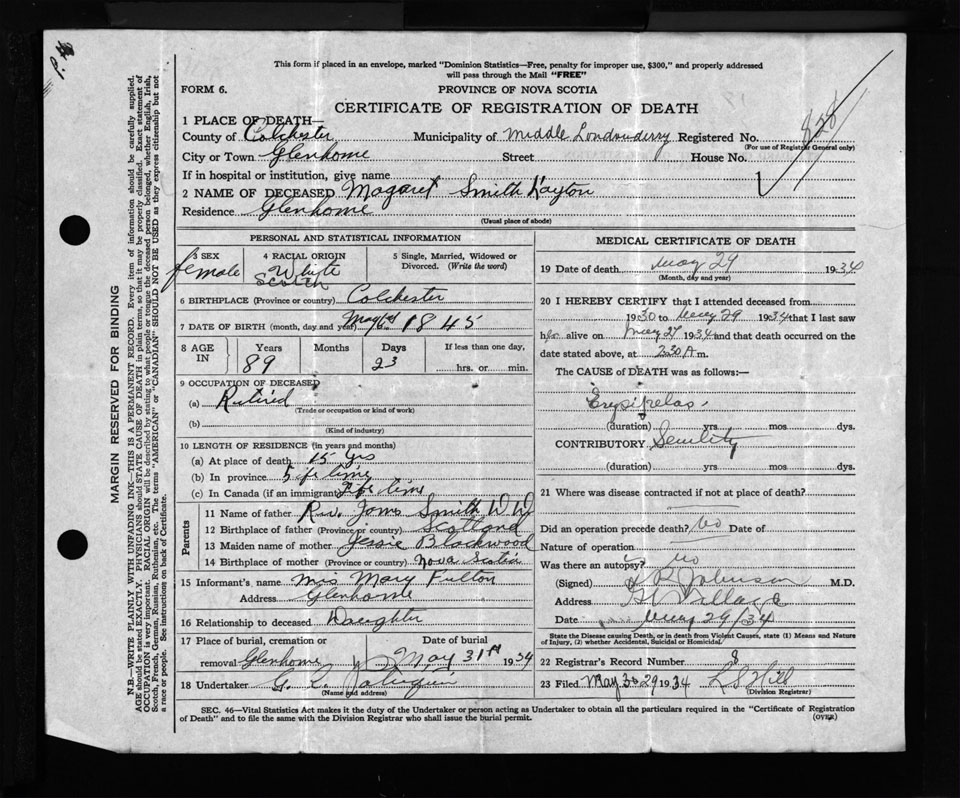 This form if placed in an envelope, marked "Dominion Statistics—Free, penalty for improper use, $300," and properly addressed
will pass through the Mail "FREE"
FORM 6.
PROVINCE OF NOVA SCOTIA
CERTIFICATE OF REGISTRATION OF DEATH
1 PLACE OF DEATH—
County of Colchester Municipality of Middle Londonderry Registered No. 828
(For use of Registrar General only)
City or Town Glenholme Street House No.
If in hospital or institution, give name
2 NAME OF DECEASED Magaret Smith Layton
Residence Glenholme
(Usual place of abode)
PERSONAL AND STATISTICAL INFORMATION
3 SEX female
4 RACIAL ORIGIN Whyte Scotch
5 Single, Married, Widowed or Divorced. (Write the word)
6 BIRTHPLACE (Province or country) Colchester
7 DATE OF BIRTH (month, day and year) May 1845
8 AGE IN
Years Months Days If less than one day,
89 23 hrs. or min.
9 OCCUPATION OF DECEASED
(a) Retired
(Trade or occupation or kind of work)
(b)
(Kind of industry)
10 LENGTH OF RESIDENCE (in years and months)
(a) At place of death 15 yrs
(b) In province life time
(c) In Canada (if an immigrant) Life time
Parents
11 Name of father Rev. James Smith
12 Birthplace of father (Province or country) Scotland
13 Maiden name of mother Jessie Blackwood
14 Birthplace of mother (Province or country) Nova Scotia
15 Informant's name Mrs Mary Fulton
Address Glenholme
16 Relationship to deceased Daughter
17 Place of burial, cremation or Date of burial
removal Glenholme May 31st 1934
18 Undertaker G.
(Name and address)
MEDICAL CERTIFICATE OF DEATH
19 Date of death May 29 1934
(Month, day and year)
20 I HEREBY CERTIFY that I attended deceased from
1930 to May 29 1934 that I last saw
her alive on May 27 1934 and that death occurred on the
date stated above, at 2.30 A m.
The CAUSE of DEATH was as follows:—
Erysipelas
(duration) yrs mos dys.
CONTRIBUTORY Senility
(duration) yrs mos dys.
21 Where was disease contracted if not at place of death?
Did an operation precede death? No Date of
Nature of operation
Was there an autopsy? no
(Signed) Johnson M.D.
Address Gt Village
Date May 29/34
State the Disease causing Death, or in death from Violent Causes, state (1) Means and Nature
of Injury, (2) whether Accidental, Suicidal or Homicidal
22 Registrar's Record Number 8
23 Filed May 29 1934 L S Hill
(Division Registrar)
SEC. 46—Vital Statistics Act makes it the duty of the Undertaker or person acting as Undertaker to obtain all the particulars required in the "Certificate of Registration
of Death" and to file the same with the Division Registrar who shall issue the burial permit.
(OVER)
MARGIN RESERVED FOR BINDING
N.B.—WRITE PLAINLY WITH UNFADING INK—THIS IS A PERMANENT RECORD. Every item of information should be carefully supplied.
AGE should be stated EXACTLY. PHYSICIANS should STATE CAUSE OF DEATH in plain terms, so that it may be properly classified. Exact statement of
OCCUPATION is very important. RACIAL ORIGIN will be described by stating to what people or tongue the deceased person belonged, whether English, Irish,
Scotch, French, German, Russian, Ruthenian, etc. The terms "AMERICAN" or "CANADIAN" SHOULD NOT BE USED as they express citizenship but not
a race or people. See instructions on back of Certificate.